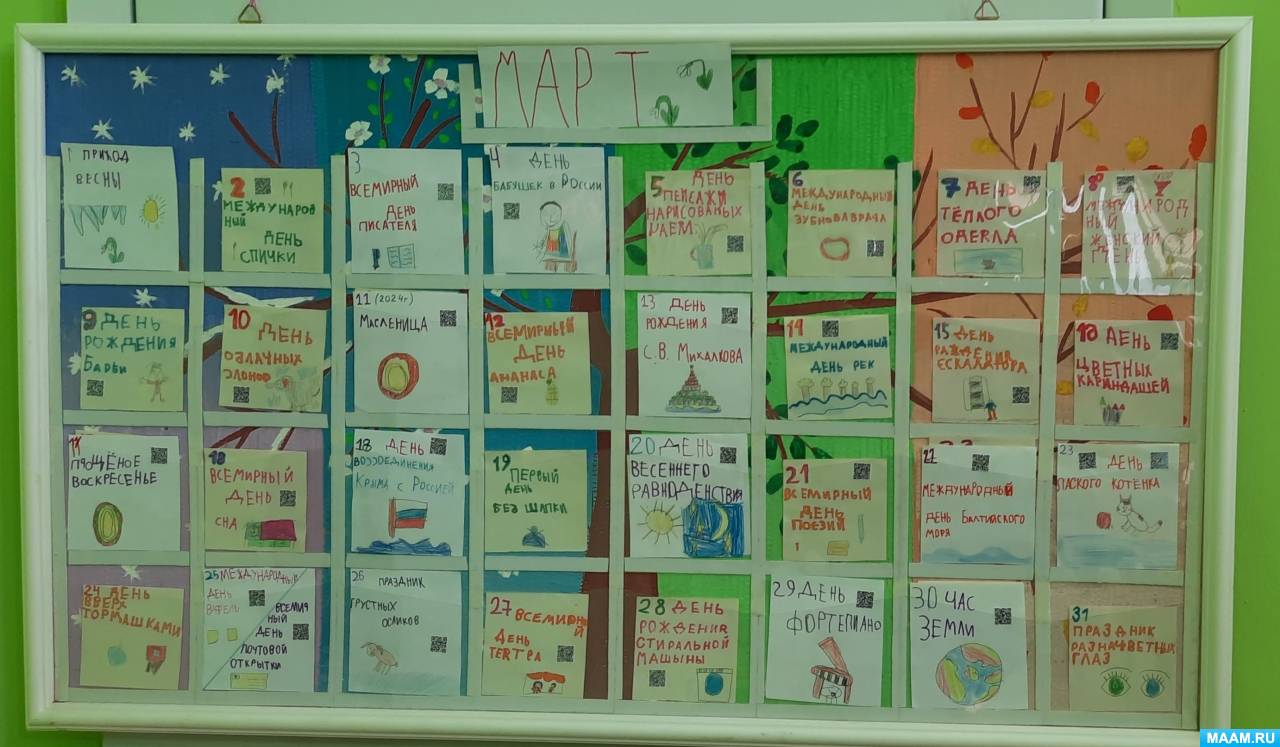 МАРТ
1 ПРИХОД
ВЕСНЫ
2
МЕЖДУНАРОД
НЫЙ
ДЕНЬ
СПИЧКИ
3
ВСЕМИРНЫЙ
ДЕНЬ
ПИСАТЕЛЯ
4 ДЕНЬ
БАБУШЕК В РОССИИ
5 ДЕНЬ
ПЕЙСАЖИ
НАРИСОВАНЫХ
ЧАЕМ
6
МЕЖДУНАРОДНЫЙ
ДЕНЬ
ЗУБНОВАВРАЧА
7 ДЕНЬ
ТЁПЛОГО
ОДЕЯЛА
8
МЕЖДУНАРОД
НЫЙ
ЖЕНСКИЙ
ДЕНЬ
9 ДЕНЬ
РОЖДЕНИЯ
БАРБИ
10 ДЕНЬ
ОБЛАЧНЫХ
СЛОНОВ
11 (2024г)
МАСЛЕНИЦА
12
ВСЕМИРНЫЙ
ДЕНЬ
АНАНАСА
13 ДЕНЬ
РОЖДЕНИЯ
С.В. МИХАЛКОВА
14
МЕЖДУНАРОДНЫЙ
ДЕНЬ РЕК
15 ДЕНЬ
РАЖДЕНИЯ
ЕСКАЛАТОРА
16 ДЕНЬ
ЦВЕТНЫХ
КАРАНДАШЕЙ
17
ПРОЩЁНОЕ
ВОСКРЕСЕНЬЕ
18
ВСЕМИРНЫЙ
ДЕНЬ
СНА
18 ДЕНЬ
ВОССОЕДИНЕНИЯ
КРЫМА С РОССИЕЙ
19
ПЕРВЫЙ
ДЕНЬ
БЕЗ ШАПКИ
20 ДЕНЬ
ВЕСЕННЕГО
РАВНОДЕНСТВИЯ
21
ВСЕМИРНЫЙ
ДЕНЬ
ПОЕЗИЙ
22
МЕЖДУНАРОДНЫЙ
ДЕНЬ БАЛТИЙСКОГО
МОРЯ
23
ДЕНЬ
КОТЁНКА
24 ДЕНЬ
ВВЕРХ
ТОРМАШКАМИ
25 МЕЖДУНАРОДНЫЙ
ДЕНЬ
ВАФЕЛЬ
ВСЕМИР
НЫЙ
ДЕНЬ
ПОЧТОВОЙ
ОТКРЫТКИ
26 ПРАЗДНИК
ГРУСТНЫХ
ОСЛИКОВ
27 ВСЕМИРНЫЙ
ДЕНЬ
ТЕАТРА
28 ДЕНЬ
РОЖДЕНИЯ
СТИРАЛЬНОЙ
МАШЫНЫ
29 ДЕНЬ
ФОРТЕПИАНО
30 ЧАС
ЗЕМЛИ
31
ПРАЗДНИК
РАЗНАЦВЕТНЫХ
ГЛАЗ
MAAM.RU